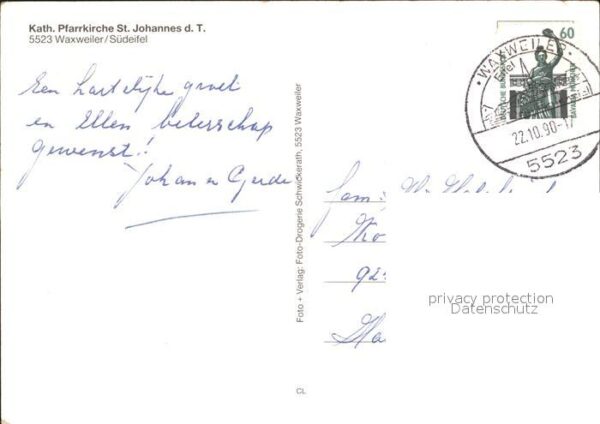 Kath. Pfarrkirche St. Johannes d. T.
5523 Waxweiler/Südeifel
Een hartelijke groet
en Ellen beterschap
gewenst!!
Johan en Gerda
Foto + Verlag: Foto-Drogerie Schwickerath, 5523 Waxweiler
CL
60
DEUTSCHE BUNDESPOST
BAVARIA MÜNCHEN
WAXWEILER
Eifel
22.10.90-17
5523
fam:
privacy protection
Datenschutz